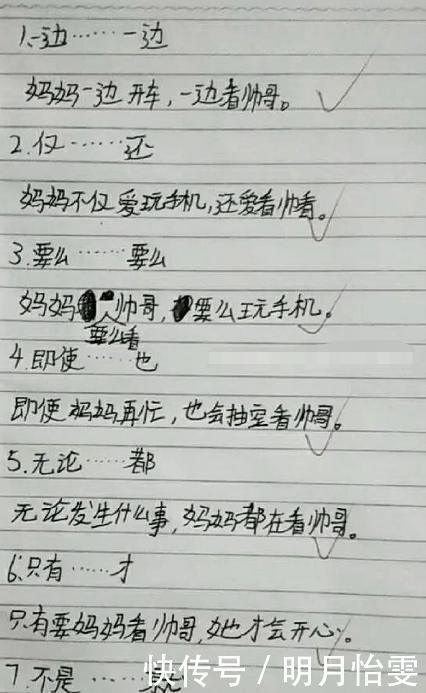 1、一边……一边
妈妈一边开车,一边看帅哥。
2.仅……还
妈妈不仅爱玩手机,还爱看帅看。
3.要么……要么
妈妈要么看帅哥,要么玩手机。
4.即使……也
即使妈妈再忙,也会抽空看帅哥。
5.无论……都
无论发生什么事,妈妈都在看帅哥。
6.只有……才
只有要妈妈看帅哥,她才会开心。
7.不是……
快传号/明月怡雯